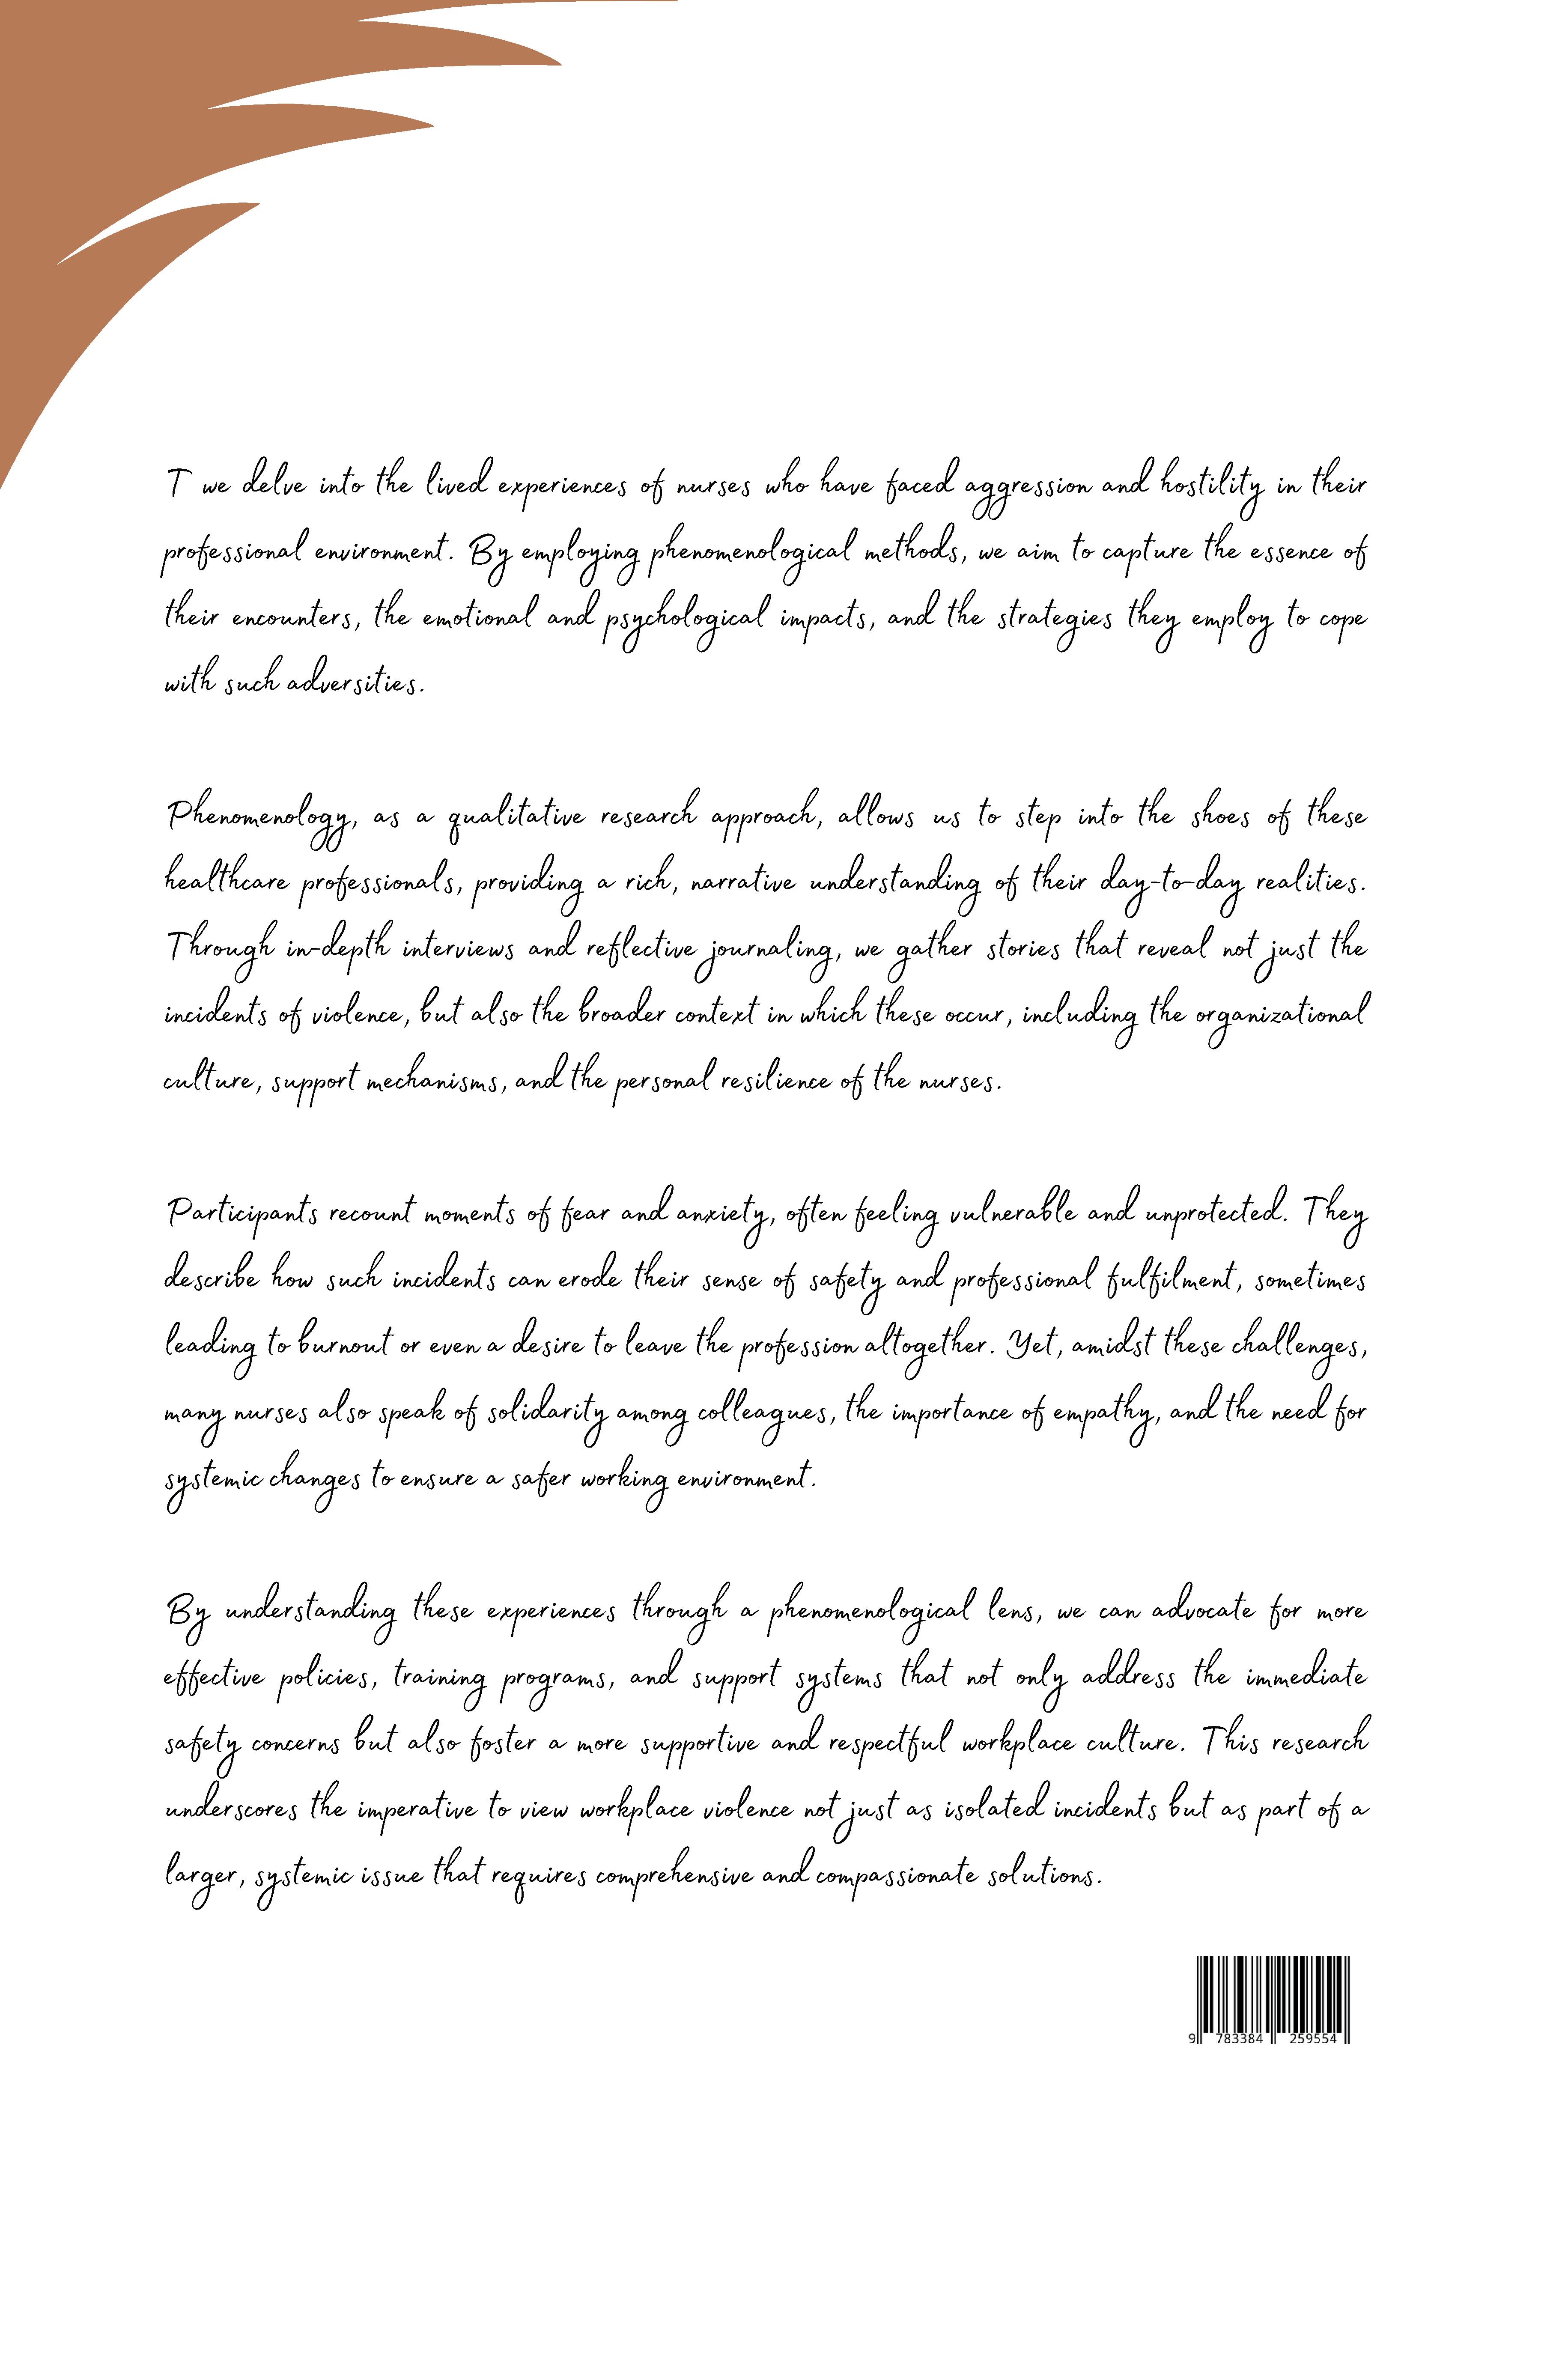 T we delve into the lived experiences of nurses who have faced aggression and hostility in their
professional environment. By employing phenomenological methods, we aim to capture the essence of
their encounters, the emotional and psychological impacts, and the strategies they employ to cope
with such adversities.
Phenomenology, as a qualitative research approach, allows us to step into the shoes of these
healthcare professionals, providing a rich, narrative understanding of their day-to-day realities.
Through in-depth interviews and reflective journaling, we gather stories that reveal not just the
incidents of violence, but also the broader context in which these occur, including the organizational
culture, support mechanisms, and the personal resilience of the nurses.
Participants recount moments of fear and anxiety, often feeling vulnerable and unprotected. They
describe how such incidents can erode their sense of safety and professional fulfilment, sometimes
leading to burnout or even a desire to leave the profession altogether. Yet, amidst these challenges,
many nurses also speak of solidarity among colleagues, the importance of empathy, and the need for
systemic changes to ensure a safer working environment.
By understanding these experiences through a phenomenological lens, we can advocate for more
effective policies, training programs, and support systems that not only address the immediate
safety concerns but also foster a more supportive and respectful workplace culture. This research
underscores the imperative to view workplace violence not just as isolated incidents but as part of a
larger, systemic issue that requires comprehensive and compassionate solutions.
9 783384 259554